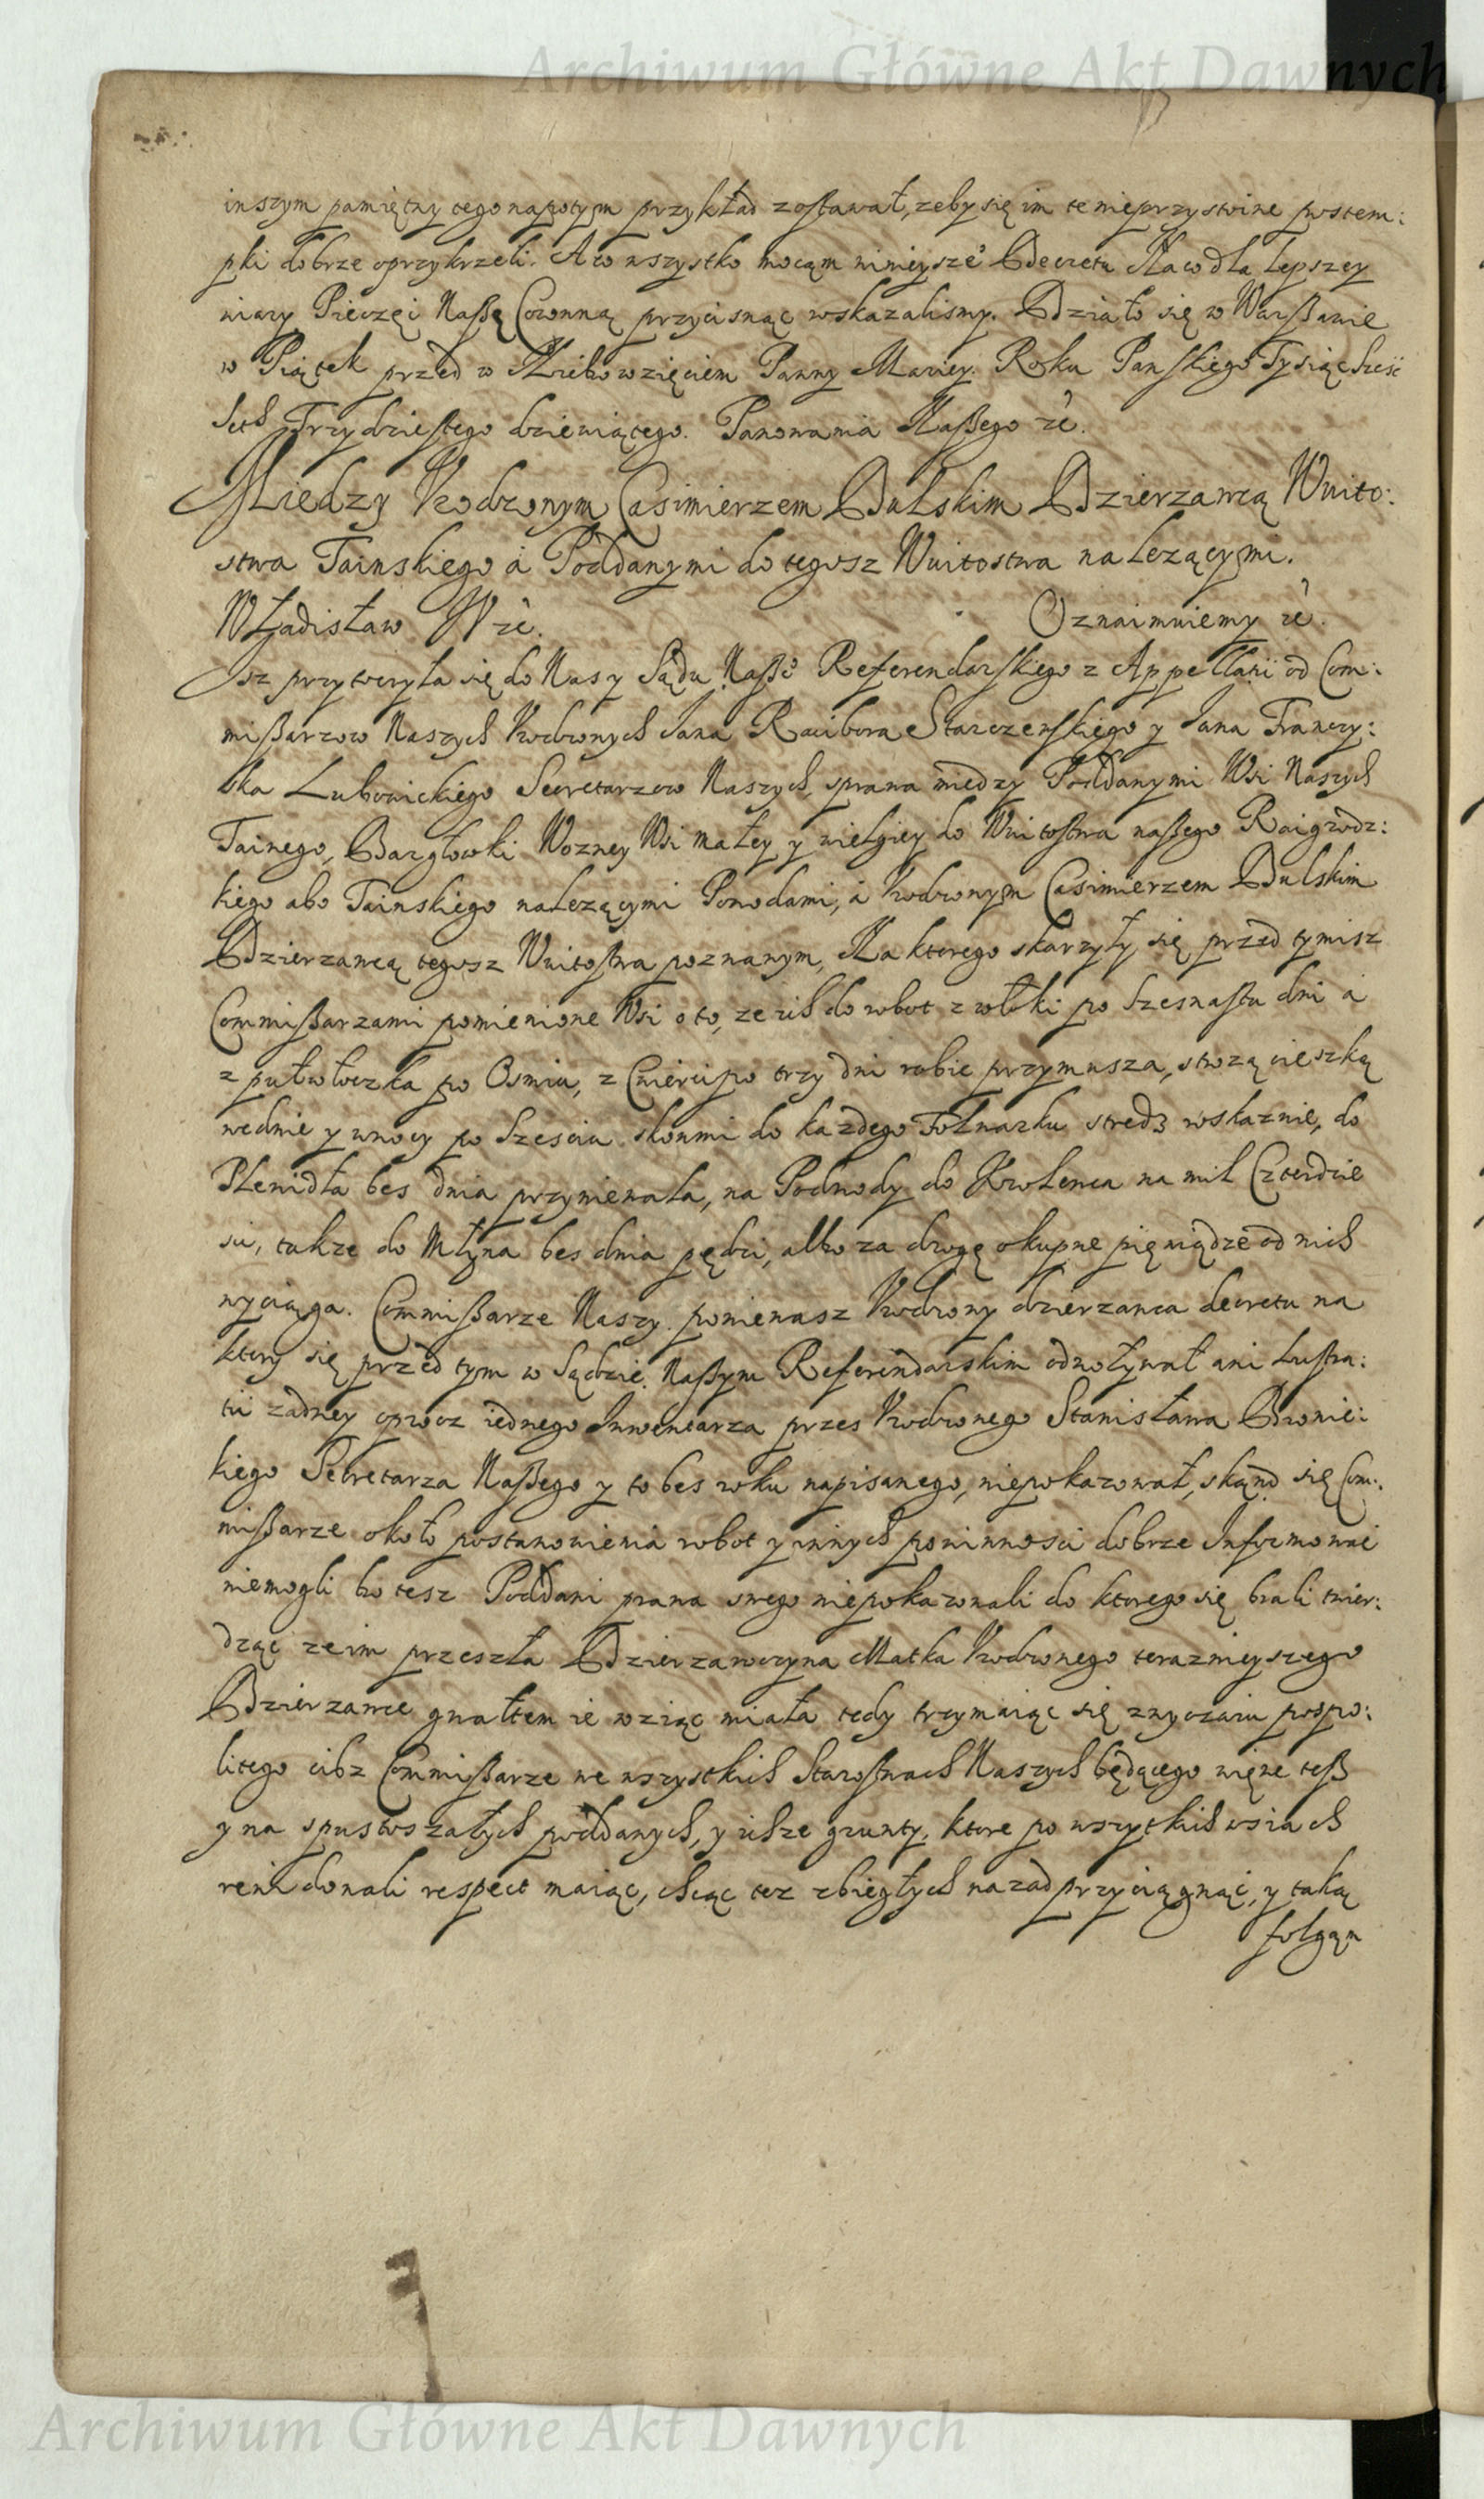 Archiwum Główne Akt Dawnych
inszym pamiętny tego napotym przykład zostawał, zeby się im te nieprzystoine postem:
pki dobrze oprzykrzeli. A to wszystko mocąm ninieysze° Decretu Na co dla lepszey
wiary Pieczęć Naßę Coronną przycisnąc wskazalismy. Działo się w Warßawie
w Piątek przed w Niebowzięciem Panny Mariey. Roku Panskiego Tysiąc Szesć
Seth Trzydziestego dziewiątego. Panowania Naßego &c.
Między Urodzonym Casimierzem Dulskim Dzierzawcą Wuito:
stwa Tainskiego a Poddanymi do tegosz Wuitostwa nalezącymi.
Władisław IV &c. Oznaimuiemy &c.
Isz przytoczyła się do Nas y Sądu Naße° Referendarskiego z Appellatii od Com:
mißarzow Naszych Urodzonych Jana Racibora Starczewskiego y Jana Franczy:
ska Lubowickiego Secretarzow Naszych, sprawa miedzy Poddanymi Wsi Naszych
Tainego, Bargłowki Wozney Wsi małey y wielgiey do Wuitostwa naßego Raigrodz:
kiego abo Tainskiego nalezącymi Powodami, a Urodzonym Casimierzem Dulskim
Dzierzawcą tegosz Wuitostwa pozwanym, Na ktorego skarzyły się przed tymisz
Commißarzami pomienione Wsi o to, ze ich do robot z włoki po Szesnastu dni a
z pułwłoczka po Osmiu, z Cwierci po trzy dni robic przymusza, strozą cieszką
wednie y wnocy po Szesciu skonmi do kazdego Folwarku stredz wskaznie, do
Plewidła bes dnia przyniewala, na Podwody do Krolewca na mil Czterdzie
sci, takze do Młyna bes dnia pędzi, albo za drogę okupne pięniądze od nich
wyciąga. Commißarze Naszy poniewasz Urodzony dzierzawca decretu na
ktory się przed tym w Sądzie Naßym Referendarskim odwoływał ani Lustra:
tii zadney oprocz iednego Inwentarza przes Urodzonego Stanisława Dronie:
kiego Sekretarza Naßego y to bes roku napisanego, niepokazował, skąnd się Com:
mißarze około postanowienia robot y innych powinnosci dobrze Informowac
niemogli bo tesz Poddani prawa swego niepokazowali do ktorego się brali twier:
dząc ze im przeszła Dzierzawczyna Matka Urodzonego teraznieyszego
Dzierzawce gwałtem ie wziąc miała tedy trzymaiąc się zwyczaiu pospo:
litego cibz Commißarze we wszystkich Starostwach Naszych będącego więne teß
y na spustoszałych poddanych, y ichze grunty, ktore po wszytkich wsiach
rewidowali respect maiąc, chcąc tez zbiegłych nazad przyciągnąc, y taką
folgąn
Archiwum Główne Akt Dawnych